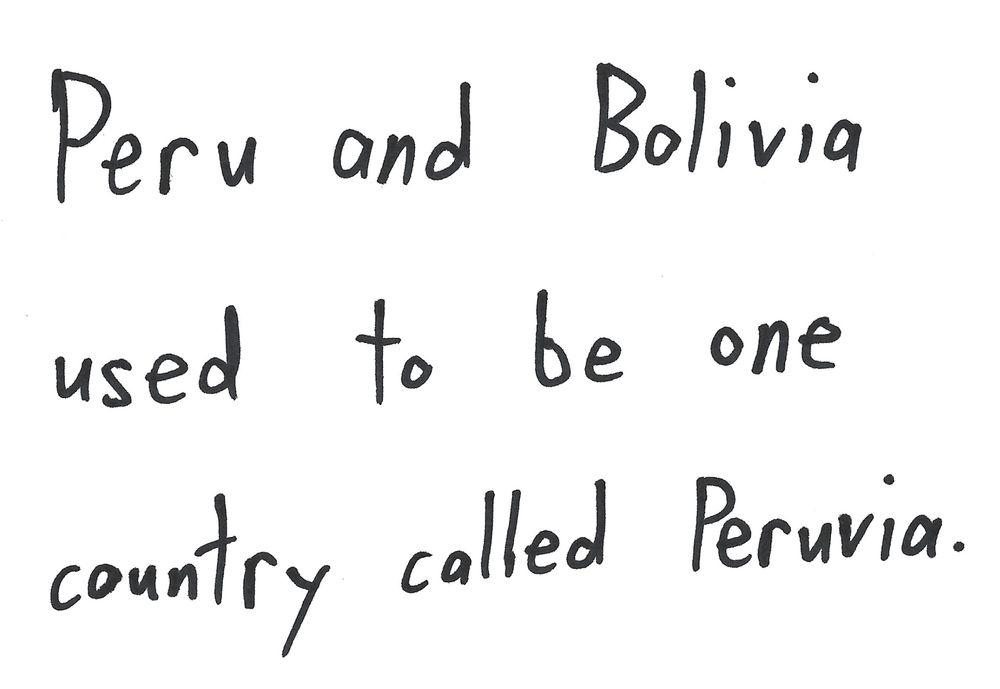 Peru and Bolivia
used to be one
country called Peruvia.